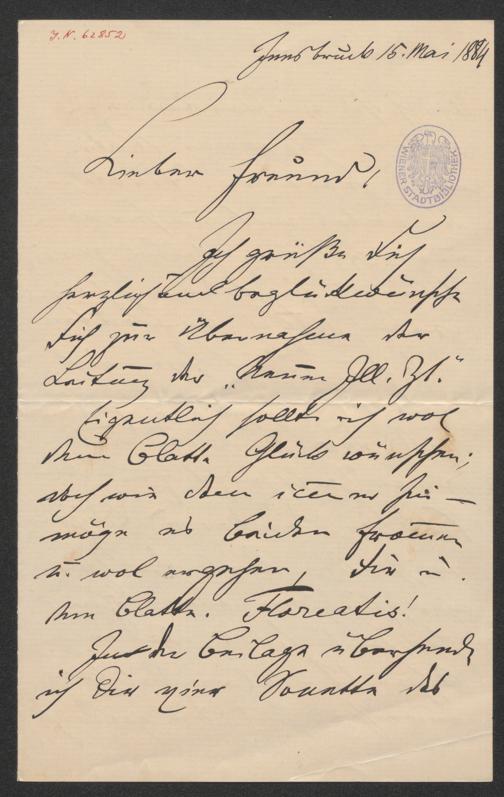 J. N. 62852
Innsbruck 15. Mai 1884
WIENER STADTBIBLIOTHEK
Lieber Freund,
Ich grüße Dich
herzlich und beglückwünsche
Dich zur Übernahme der
Leitung der „Neuen Ill. Zt."
Eigentlich sollte ich wol
dem Blatte Glück wünschen;
doch wie dem immer sei —
möge es beiden frommen
u. wol ergehen, Dir u.
dem Blatte. Floreatis!
In der Beilage übersende
ich Dir vier Sonette des